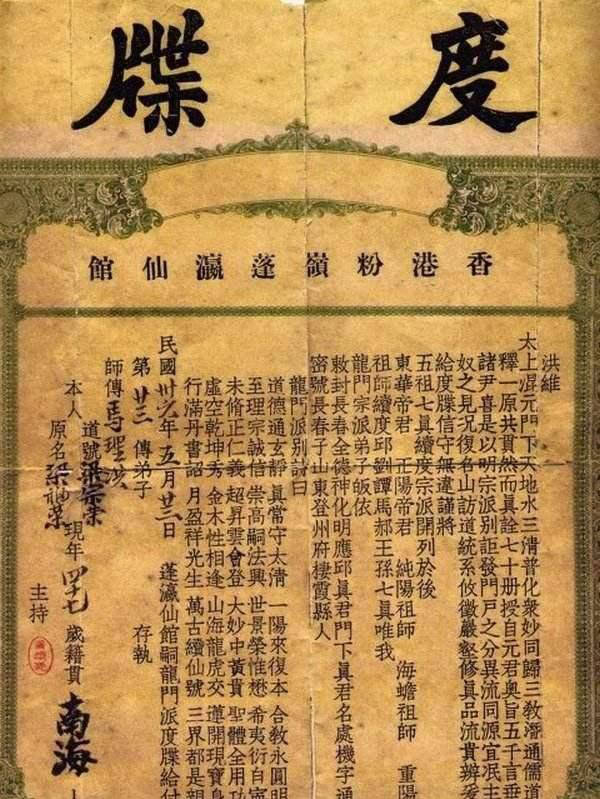 度牒
香港粉嶺蓬瀛仙館
洪維
太上混元門下天地水三清普化衆妙同歸三敎潛通儒道
釋一原共貫然而眞詮七十册授自元君奧旨五千言垂
諸尹喜是以明宗派別詎發門戶之分異流同源宜泯主
奴之見況復名山訪道統系攸徵嚴壑修眞品流貴辨爰
給度牒信守無違謹將
五祖七眞續度宗派開列於後
東華帝君 正陽帝君 純陽祖師 海蟾祖師 重陽
祖師續度邱劉譚馬郝王孫七眞唯我
龍門宗派弟子皈依
敕封長春全德神化明應邱眞君門下眞君名處機字通
密號長春子山東登州府棲霞縣人
龍門派別詩曰
道德通玄靜 眞常守太清 一陽來復本 合敎永圓明
至理宗誠信 崇高嗣法興 世景榮惟懋 希夷衍自寧
未脩正仁義 超昇雲會登 大妙中黃貴 聖體全用功
虛空乾坤秀 金木性相逢 山海龍虎交 蓮開現寶身
行滿丹書詔 月盈祥光生 萬古續仙號 三界都是親
蓬瀛仙館嗣龍門派度牒給付
存執
民國卅六年五月廿三日
第廿三傳弟子
師傳馬聖洪
本人
道號梁宗榮
原名梁福榮
現年四十七歲籍貫南海人
主持